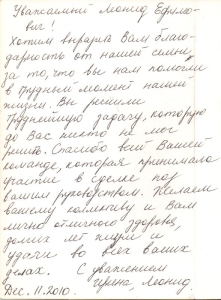 Уважаемый Леонид Ефимо-
вич!
Хотим выразить Вам благо-
дарность от нашей семьи,
за то, что вы нам помогли
в трудный момент нашей
жизни. Вы решили
труднейшую задачу, которую
до Вас никто не мог
решить. Спасибо всей Вашей
команде, которая принимала
участие в сделке под
вашим руководством. Желаем
вашему коллективу и Вам
лично отличного здоровья,
долгих лет жизни и
удачи во всех ваших
делах. С уважением
Ирина, Леонид.
Dec. 11. 2010.